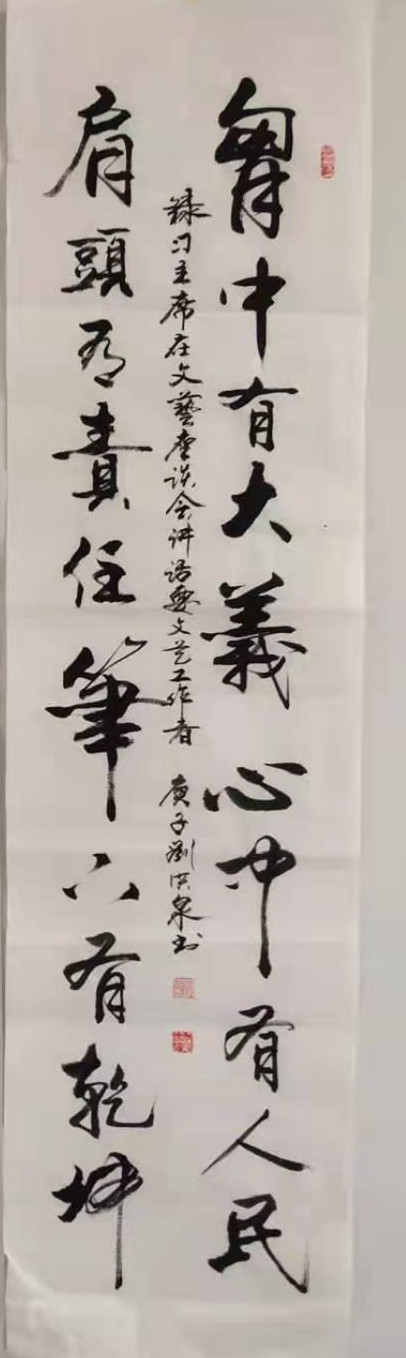 胷中有大義心中有人民
肩頭有責任筆下有乾坤
録习主席在文藝座谈会讲话要文艺工作者 庚子劉洪泉书